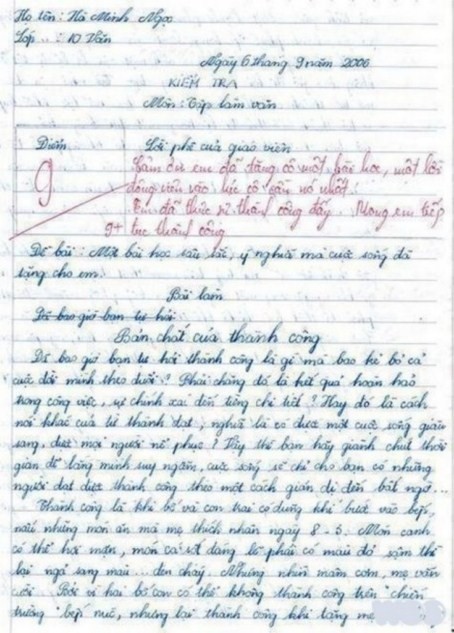 Họ tên : Hà Minh Ngọc
Lớp : 10 Văn
Ngày 6 tháng 9 năm 2006
KIỂM TRA
Môn : Tập làm văn
Điểm
Lời phê của giáo viên
9
Cảm ơn em đã tặng cô một bài học, một lời
động viên vào lúc cô cần nó nhất.
Em đã thực sự thành công đấy. Mong em tiếp
9+ tục thành công
Đề bài : Một bài học sâu sắc, ý nghĩa mà cuộc sống đã
tặng cho em.
Bài làm
Đã bao giờ bạn tự hỏi
Bản chất của thành công
Đã bao giờ bạn tự hỏi thành công là gì mà bao kẻ bỏ cả
cuộc đời mình theo đuổi ? Phải chăng đó là kết quả hoàn hảo
trong công việc, sự chính xác đến từng chi tiết ? Hay đó là cách
nói khác của từ thành đạt, nghĩa là có được một cuộc sống giàu
sang, được mọi người nể phục ? Vậy thì bạn hãy giành chút thời
gian để lắng mình suy ngẫm, cuộc sống sẽ chỉ cho bạn có những
người đạt được thành công theo một cách giản dị đến bất ngờ...
Thành công là khi bố và con trai có dũng khí bước vào bếp,
nấu những món ăn mà mẹ thích nhân ngày 8 - 3. Món canh
có thể hơi mặn, món cá sốt đáng lẽ phải có màu đỏ sậm thì
lại ngả sang màu ... đen cháy. Nhưng nhìn mâm cơm, mẹ vẫn
cười. Bởi vì hai bố con có thể không thành công trên "chiến
trường" bếp núc, nhưng lại thành công khi tặng mẹ